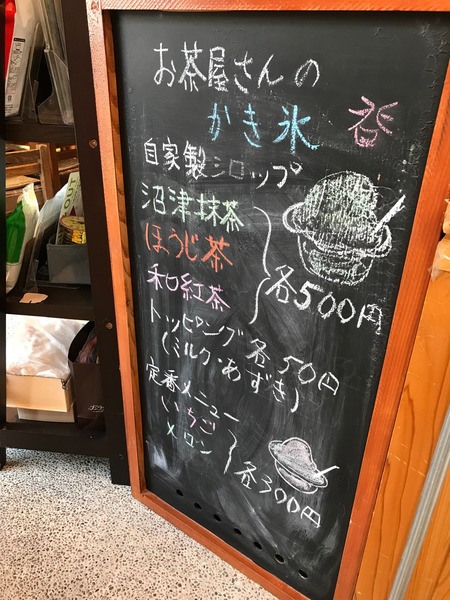 お茶屋さんの
かき氷
自家製シロップ
沼津抹茶
ほうじ茶
和紅茶
各500円
トッピング 各50円
(ミルク・あずき)
定番メニュー
いちご
メロン
各300円